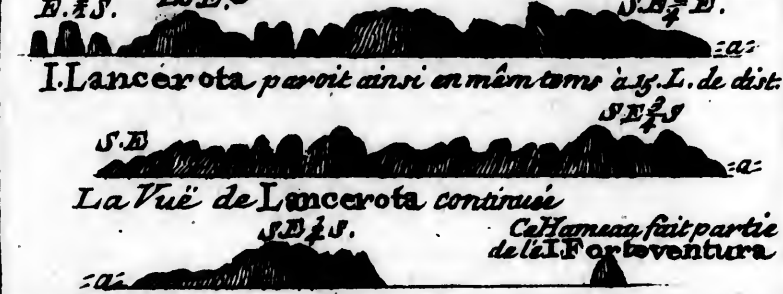 E.¼S. E. S.E¾E.
=a=
I.Lancerota paroit ainsi en mêm tems à 15.L. de dist.
SE¾S
S.E
=a=
La Vuë de Lancerota continuée
SE¼S.
Ce Hameau fait partie
de l'I Forteventura
=a=